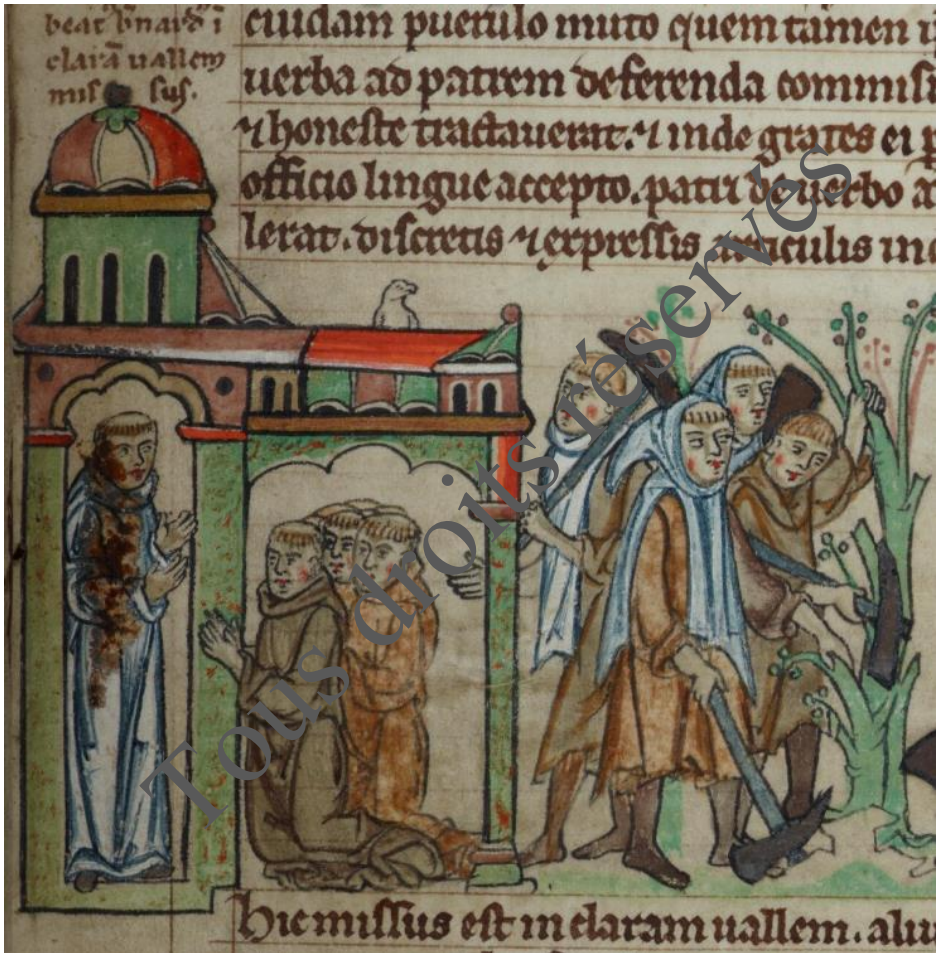 clarā uallem
mis sus.
cuidam puerulo muto quem tamen
uerba ad patrem deferenda commisi
⁊ honeste tractauerat. ⁊ inde grates ei
officio lingue accepto. patri de uerbo
lerat. discretis ⁊ expressis articulis
Tous droits réservés
Hic missus est in claram uallem.